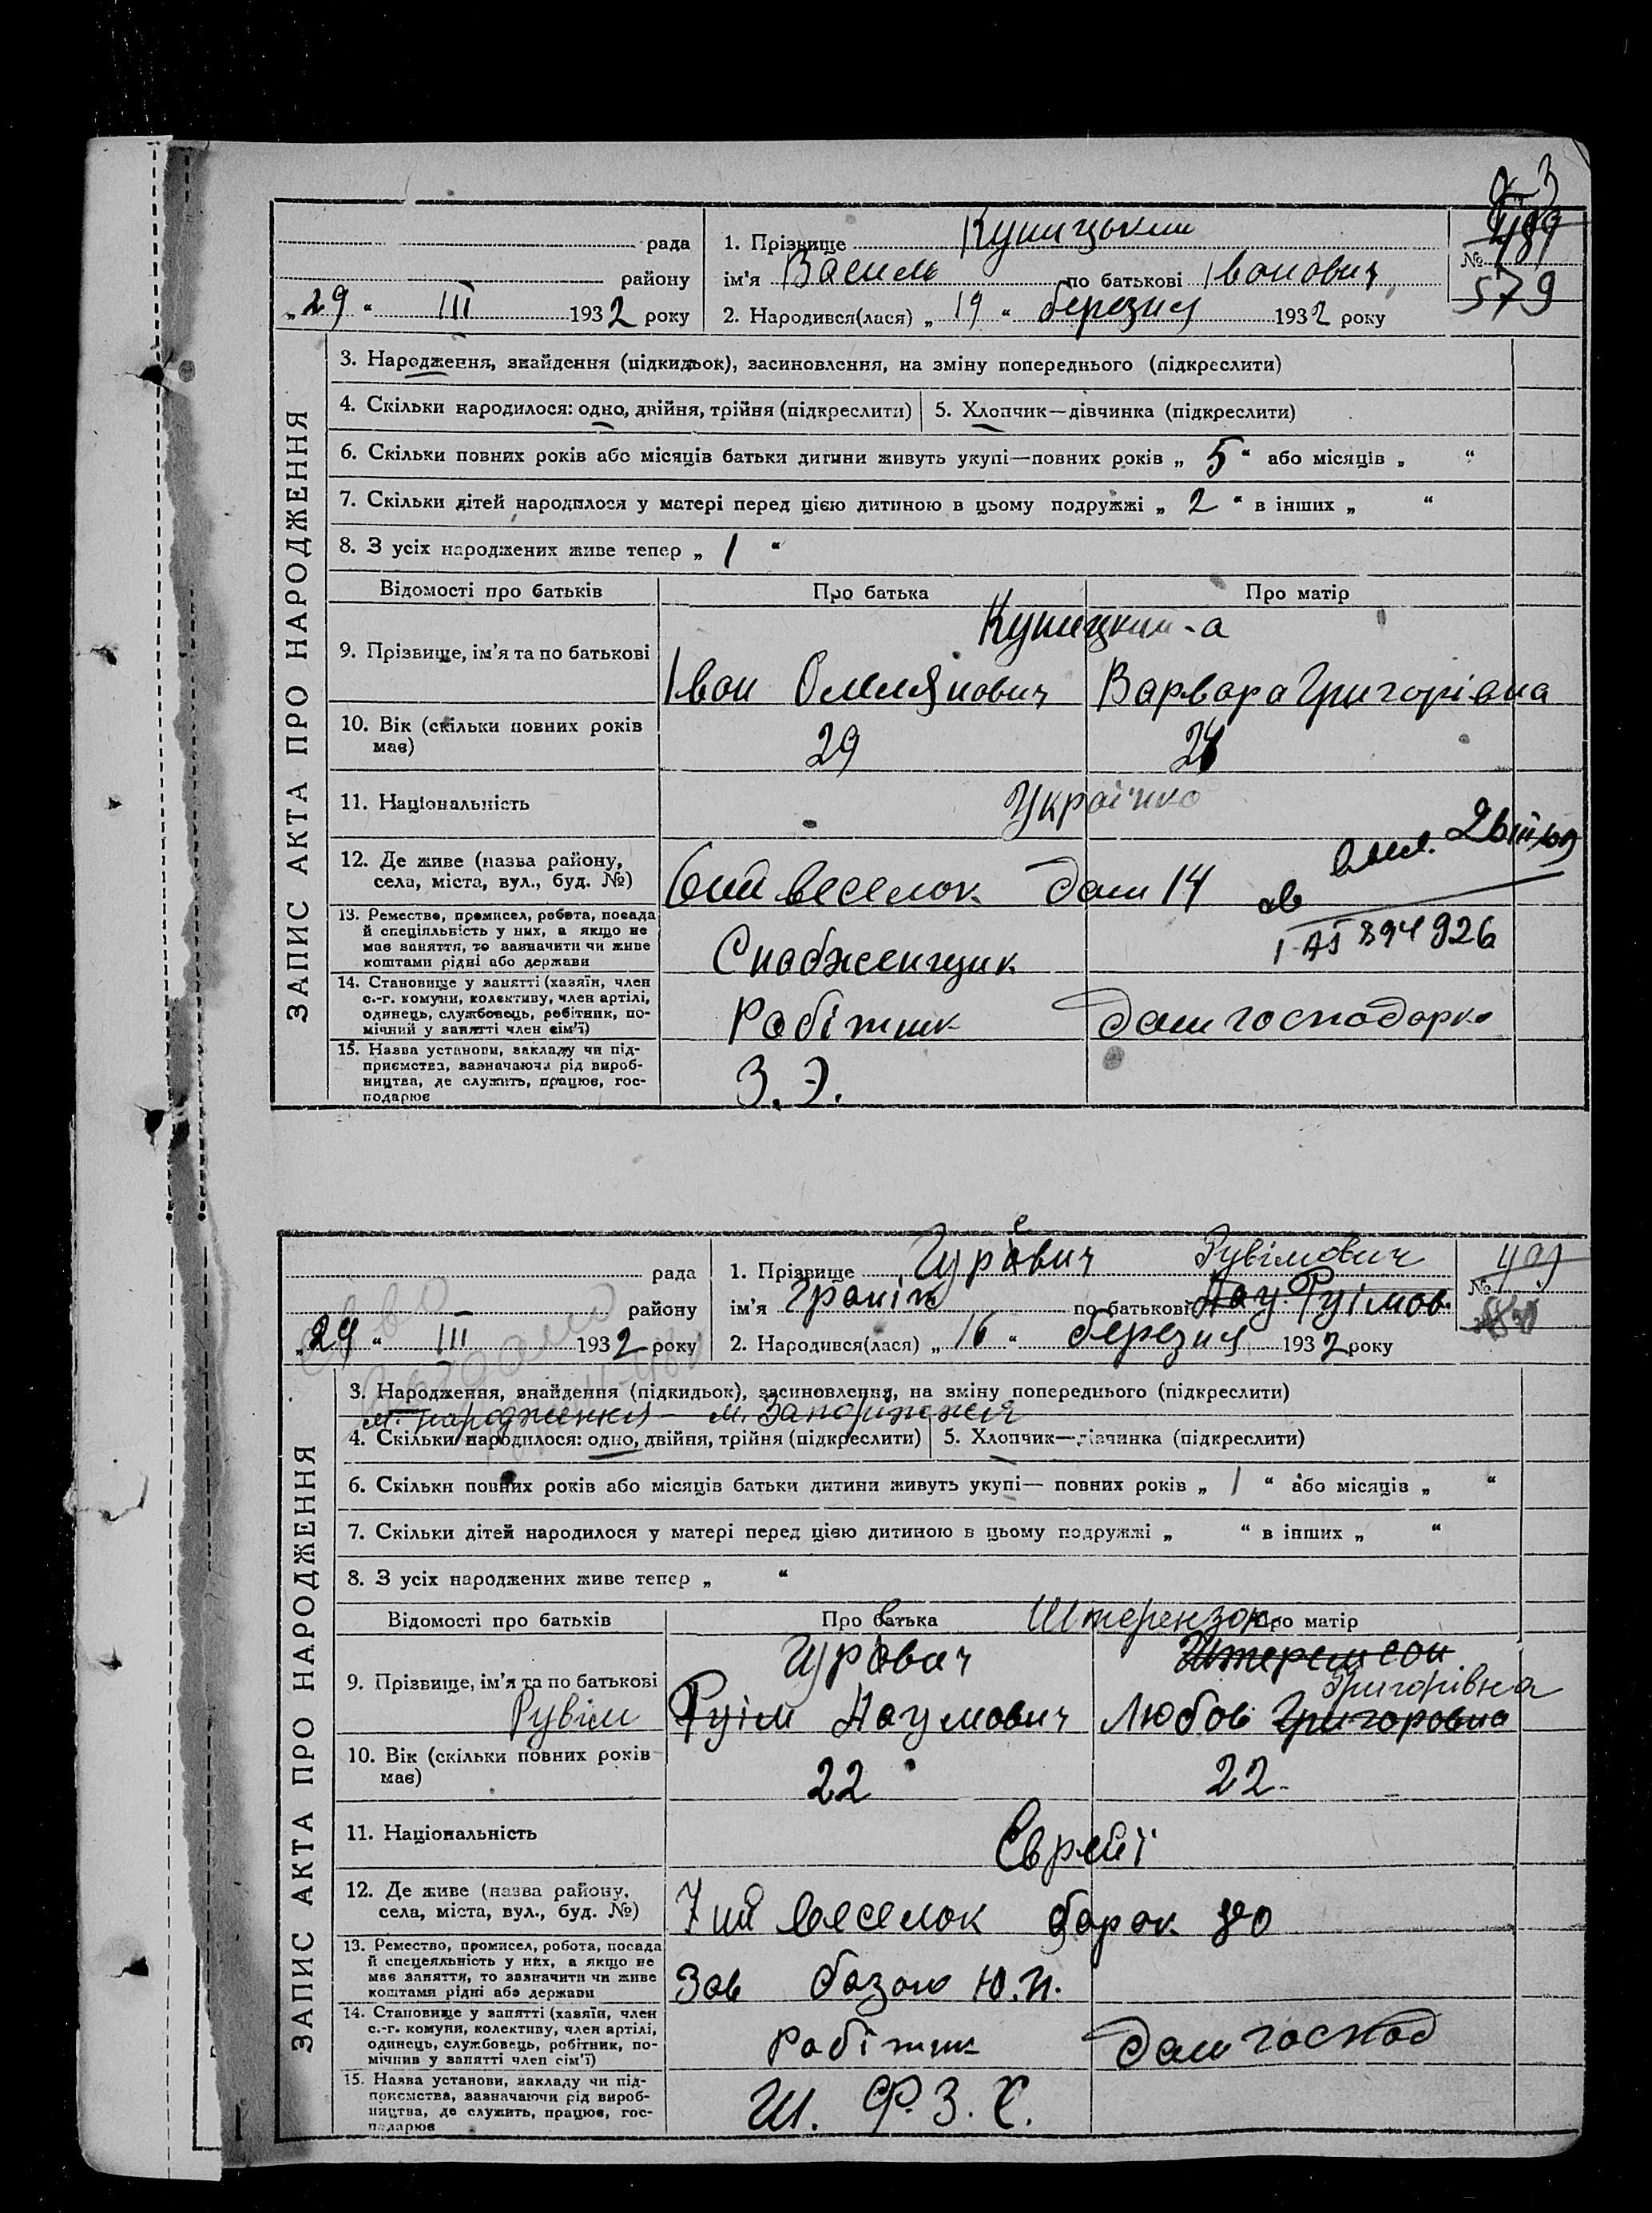 рада
району
„29“ III 1932 року
1. Прізвище Куницький
ім'я Василь по батькові Іванович
2. Народився(лася) „19“ березня 1932 року
№ 579
ЗАПИС АКТА ПРО НАРОДЖЕННЯ
3. Народження, знайдення (підкидьок), засиновлення, на зміну попереднього (підкреслити)
4. Скільки народилося: одно, двійня, трійня (підкреслити)
5. Хлопчик—дівчинка (підкреслити)
6. Скільки повних років або місяців батьки дитини живуть укупі—повних років „5“ або місяців „ “
7. Скільки дітей народилося у матері перед цією дитиною в цьому подружжі „2“ в інших „ “
8. З усіх народжених живе тепер „1“
Відомості про батьків Про батька Про матір
Куницький-а
9. Прізвище, ім'я та по батькові
Іван Омелянович Варвара Григорівна
10. Вік (скільки повних років
має)
29
11. Національність Україн
12. Де живе (назва району,
села, міста, вул., буд. №)
6ий веселок дом 14
13. Ремество, промисел, робота, посада
й спеціяльність у них, а якщо не
має заняття, то зазначити чи живе
коштами рідні або держави
Снабженщик
І-АЯ 894926
14. Становище у занятті (хазяїн, член
с.-г. комуни, колективу, член артілі,
одинець, службовець, робітник, по-
мічний у занятті член сім'ї)
Робітник Домгосподарка
15. Назва установи, закладу чи під-
приємства, зазначаючи рід вироб-
ництва, де служить, працює, гос-
подарює
З. Э.
рада
району
„29“ III 1932 року
1. Прізвище Гуревич Рувімович
ім'я Граніт по батькові Нау. Руімов.
2. Народився(лася) „16“ березня 1932 року
№
ЗАПИС АКТА ПРО НАРОДЖЕННЯ
3. Народження, знайдення (підкидьок), засиновлення, на зміну попереднього (підкреслити)
м. народження м. Запоріжжя
4. Скільки народилося: одно, двійня, трійня (підкреслити)
5. Хлопчик—дівчинка (підкреслити)
6. Скільки повних років або місяців батьки дитини живуть укупі— повних років „1“ або місяців „ “
7. Скільки дітей народилося у матері перед цією дитиною в цьому подружжі „ “ в інших „ “
8. З усіх народжених живе тепер „ “
Відомості про батьків Про батька Про матір
Штерензон
Гуревич
9. Прізвище, ім'я та по батькові
Григорівна
Рувім Руім Наумович Любов Григоровна
10. Вік (скільки повних років
має)
22 22
11. Національність Єврейї
12. Де живе (назва району,
села, міста, вул., буд. №)
7ий веселок барак
13. Ремество, промисел, робота, посада
й спецеяльність у них, а якщо не
має заняття, то зазначити чи живе
коштами рідні або держави
Зав базою
14. Становище у занятті (хазяїн, член
с.-г. комуни, колективу, член артілі,
одинець, службовець, робітник, по-
мічнив у занятті член сім'ї)
Робітник Домгоспод
15. Назва установи, закладу чи під-
приємства, зазначаючи рід вироб-
ництва, де служить, працює, гос-
подарює
Ш. Ф.З.У.